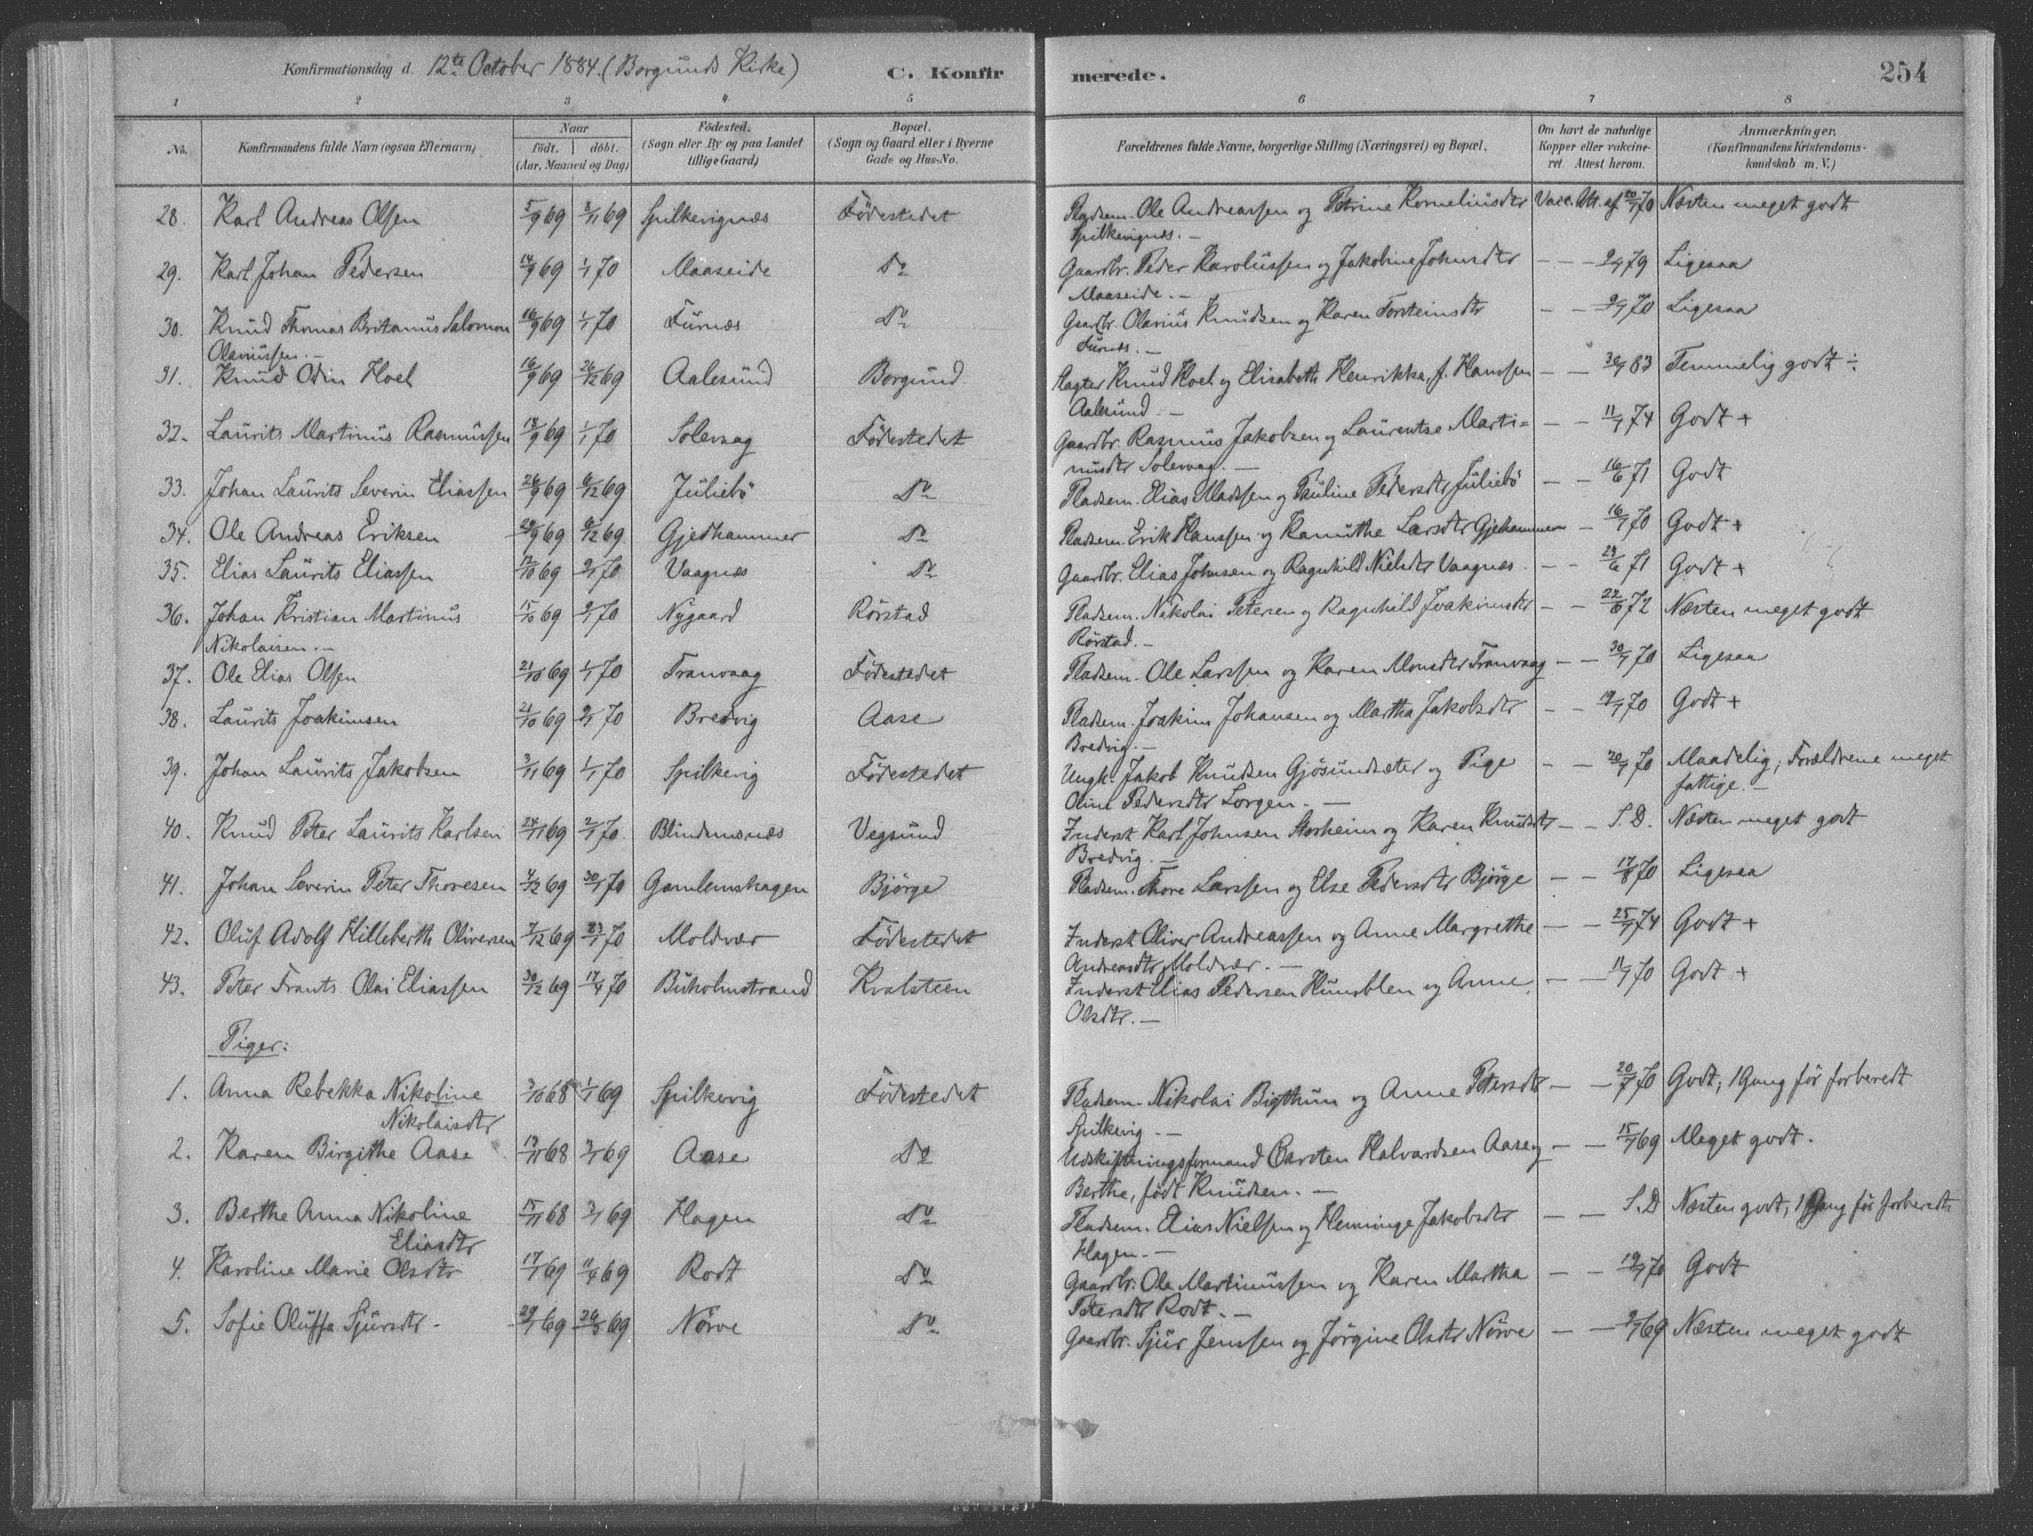 Konfirmationsdag d. 12te October 1884. (Borgunds Kirke) C. Konfirmerede. 254
1 2 3 4 5 6 7 8
No. Konfirmandens fulde Navn (ogsaa Efternavn) Naar født. døbt. (Aar, Maaned og Dag) Fødested. (Sogn eller By og paa Landet tillige Gaard) Bopæl. (Sogn og Gaard eller i Byerne Gade og Hus-No. Forældrenes fulde Navne, borgerlige Stilling (Næringsvei) og Bopæl. Om havt de naturlige Kopper eller vaccineret. Attest herom. Anmærkninger. (Konfirmandens Kristendomskundskab m. V.)
28. Karl Andreas Olsen 5/9 69 8/11 69 Spilkevignæs Fødestedet Pladsm. Ole Andreassen og Petrine Korneliusdtr Vacc. Att. af 20/7 70 Næsten meget godt
Spilkevignæs. —
29. Karl Johan Pedersen 14/9 69 1/1 70 Maaseide Do Gaardbr. Peder Karolussen og Jakobine Johnsdtr — — 2/7 79 Ligesaa
Maaseide. —
30. Knud Thomas Britanus Salomon 16/9 69 1/1 70 Furnæs Do Gaardbr. Olavius Knudsen og Karen Torsteinsdtr — — 9/7 70 Ligesaa
Olaviussen. — Furnæs. —
31. Knud Odin Hoel 16/9 69 26/12 69 Aalesund Borgund Slagter Knud Hoel og Elisabeth Henrikka, f. Hanssen — — 30/7 83 Temmelig godt ÷
Aalesund. —
32. Laurits Martinus Rasmussen 18/9 69 1/1 70 Solevaag Fødestedet Gaardbr. Rasmus Jakobsen og Laurentse Marti= — — 11/7 74 Godt +
nusdtr Solevaag. —
33. Johan Laurits Severin Eliassen 26/9 69 6/12 69 Juliebø Do Pladsm. Elias Madssen og Pauline Pedersdtr Juliebø — — 16/6 71 Godt
34. Ole Andreas Eriksen 28/9 69 6/12 69 Gjedhammer Do Pladsm. Erik Hanssen og Ramithe Larsdtr Gjehammer — 16/7 70 Godt +
35. Elias Laurits Eliassen 12/10 69 2/1 70 Vaagnæs Do Gaardbr. Elias Johnsen og Ragnhild Nielsdtr Vaagnæs. — — 23/6 71 Godt +
36. Johan Kristian Martinus 15/10 69 2/1 70 Nygaard Rørstad Pladsm. Nikolai Petersen og Ragnhild Joakimsdtr — — 22/6 72 Næsten meget godt
Nikolaisen. — Rørstad. —
37. Ole Elias Olsen 21/10 69 1/1 70 Tranvaag Fødestedet Pladsm. Ole Larssen og Karen Monsdtr Tranvaag — — 30/7 70 Ligesaa
38. Laurits Joakimsen 21/10 69 2/1 70 Bredvig Aase Pladsm. Joakim Johansen og Martha Jakobsdtr — — 19/7 70 Godt +
Bredvig. —
39. Johan Laurits Jakobsen 3/11 69 1/1 70 Spilkevig Fødestedet Ungk. Jakob Knudsen Gjøsundsæter og Pige — — 20/7 70 Maadelig; Forældrene meget
Oline Pedersdtr Lorgen. — fattige. —
40. Knud Peter Laurits Karlsen 24/11 69 2/1 70 Blindemsnæs Vegsund Inderst Karl Johnsen Storheim og Karen Knudsdtr — — S.D. Næsten meget godt
Bredvig. —
41. Johan Severin Peter Thoresen 4/12 69 30/1 70 Gamlemshagen Bjørge Pladsm. Thore Larssen og Else Pedersdtr Bjørge — — 17/8 70 Ligesaa
42. Oluf Adolf Hilleberth Oliversen 7/12 69 23/1 70 Moldvær Fødestedet Inderst Oliver Andreassen og Anne Margrethe — — 25/7 74 Godt +
Andreasdtr Moldvær. —
43. Peter Frants Olai Eliassen 30/12 69 17/4 70 Buholmstrand Kvalsteen Inderst Elias Pedersen Humblen og Anne — — 11/7 70 Godt +
Olsdtr. —
Piger:
1. Anna Rebekka Nikoline 3/10 68 1/1 69 Spilkevig Fødestedet Pladsm. Nikolai Bigthun og Anne Petersdtr — — 20/7 70 Godt; 1 Gang før forberedt
Nikolaisdtr Spilkevig. —
2. Karen Birgithe Aase 13/11 68 3/1 69 Aase Do Udskiftningsformand Carsten Halvardsen Aase og — — 15/7 69 Meget godt.
Berthe, født Knudsen. —
3. Berthe Anna Nikoline 15/11 68 3/1 69 Hagen Do Pladsm. Elias Nielsen og Henninge Jakobsdtr — — S.D Næsten godt; 1 Gang før forberedt
Eliasdtr Hagen. —
4. Karoline Marie Olsdtr 17/1 69 11/4 69 Rodt Do Gaardbr. Ole Martinussen og Karen Martha — — 19/7 70 Godt
Petersdtr Rodt. —
5. Sofie Oluffa Sjursdtr - 29/1 69 26/3 69 Nørve Do Gaardbr. Sjur Jenssen og Jørgine Olsdtr Nørve — — 9/7 69 Næsten meget godt